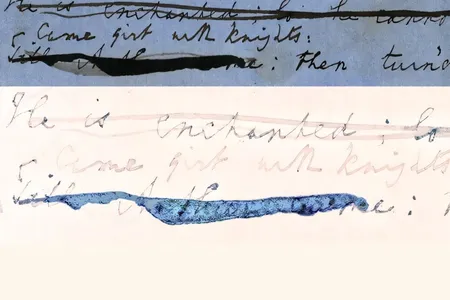 He is enchanted; So he canno
& Came girt with knights:
me: then turn'd
He is enchanted; So
& Came girt with knights
me: